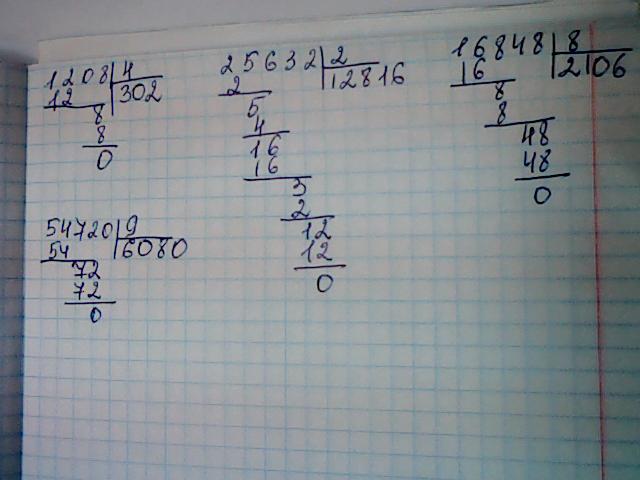 1208 4
12 302
8
8
0
25632 2
2 12816
5
4
16
16
3
2
12
12
0
16848 8
16 2106
8
8
48
48
0
54720 9
54 6080
72
72
0